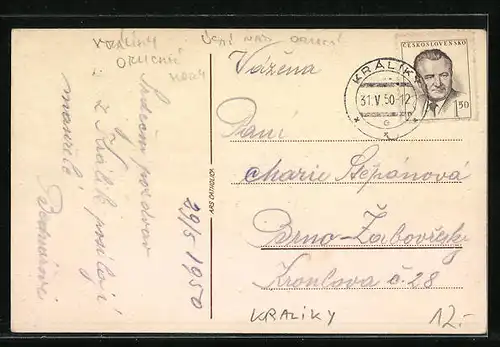 KRÁLÍKY
ORLICKÉ
HORY
ÚSTÍ NAD ORLICÍ
Srdečný pozdrav
z Králík posílají
manželé
29/5 1950
ARS CATHOLICA
ČESKOSLOVENSKO
1,50
KRÁLÍKY
31.V.50-12
Vážená
Paní
Marie Štěpánová
Brno-Žabovřesky
č. 28
KRALIKY
12.-